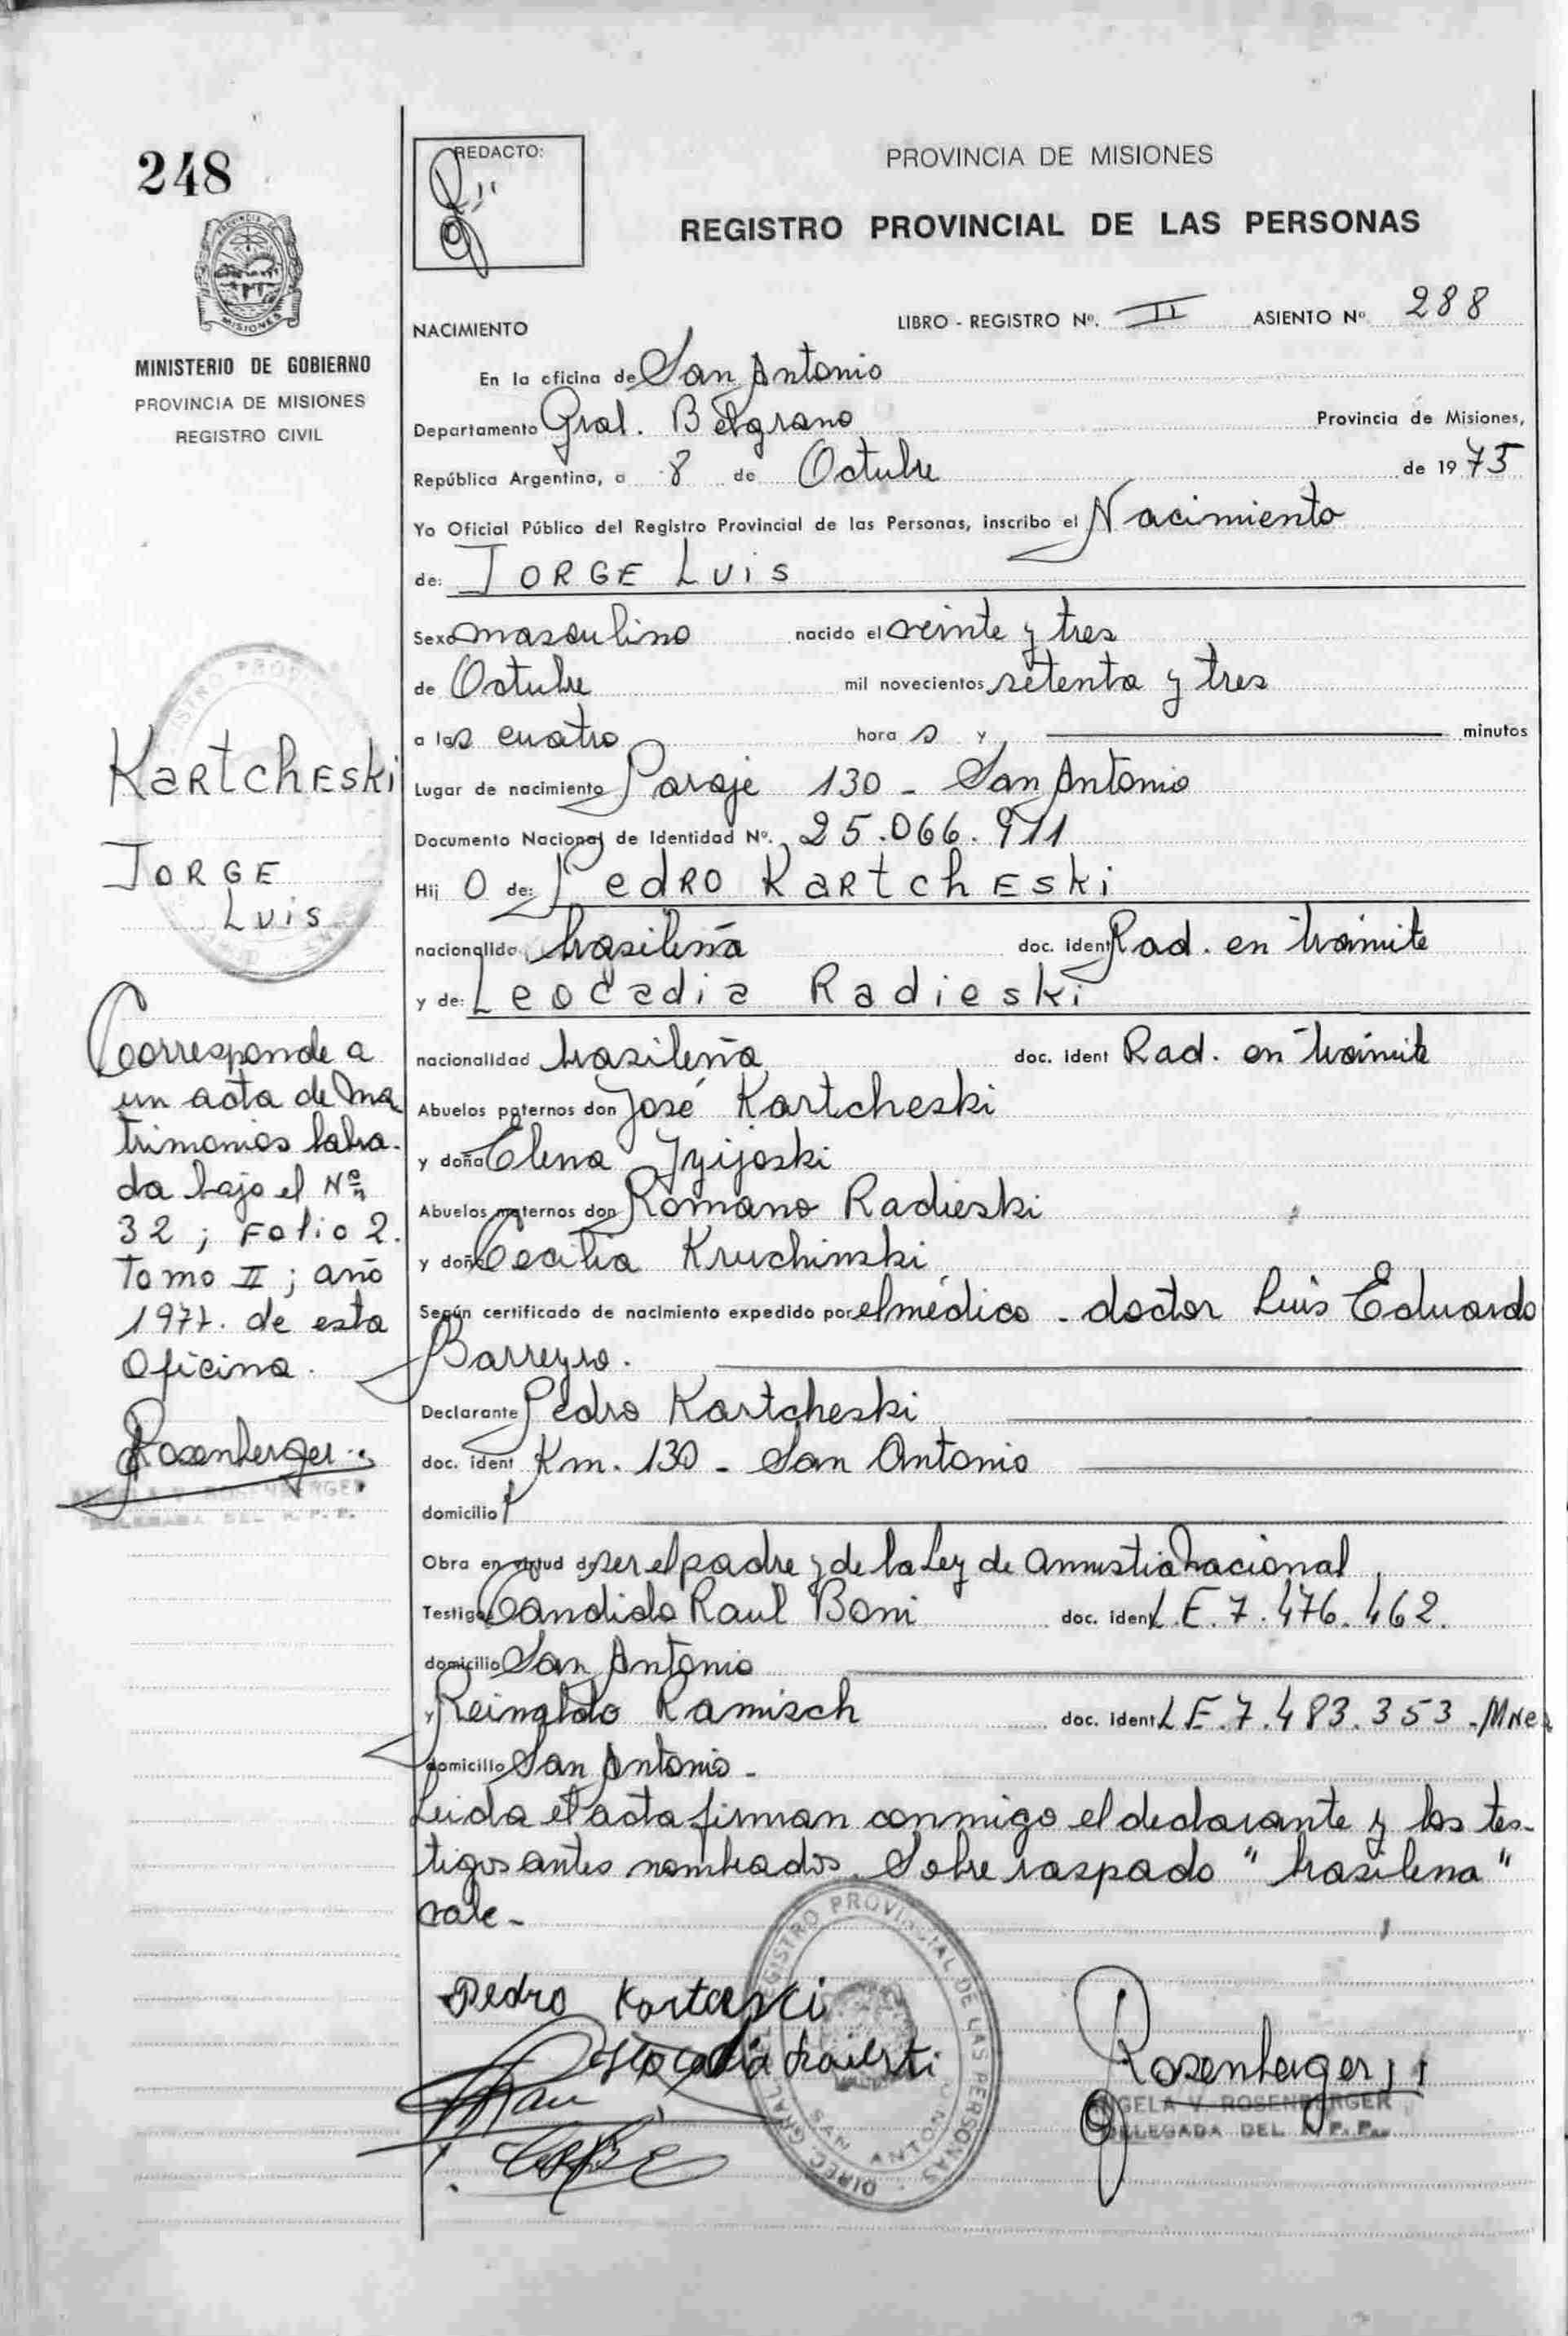 248
MINISTERIO DE GOBIERNO
PROVINCIA DE MISIONES
REGISTRO CIVIL
REDACTO:
PROVINCIA DE MISIONES
REGISTRO PROVINCIAL DE LAS PERSONAS
NACIMIENTO
LIBRO - REGISTRO Nº. II ASIENTO Nº 288
En la oficina de San Antonio
Departamento Gral. Belgrano Provincia de Misiones,
República Argentina, a 8 de Octubre de 1975
Yo Oficial Público del Registro Provincial de las Personas, inscribo el Nacimiento
de: JORGE LUIS
Sexo masculino nacido el veinte y tres
de Octubre mil novecientos setenta y tres
a las cuatro hora s y minutos
Lugar de nacimiento Paraje 130 - San Antonio
Documento Nacional de Identidad Nº. 25.066.911
Hij o de: Pedro Kartcheski
nacionalida brasileña doc. ident Rad. en trámite
y de: Leocadia Radieski
nacionalidad brasileña doc. ident Rad. en trámite
Abuelos paternos don José Kartcheski
y doña Elena Jyijoski
Abuelos maternos don Romano Radieski
y doña Cecilia Kruchinski
Según certificado de nacimiento expedido por el médico - doctor Luis Eduardo
Barreyro.
Declarante Pedro Kartcheski
doc. ident Km. 130 - San Antonio
domicilio
Obra en virtud de ser el padre y de la Ley de Amnistia Nacional
Testigos Candido Raul Boni doc. ident L.E. 7.476.462.
domicilio San Antonio
y Reinaldo Ramisch doc. ident L.E. 7.483.353 - Mnes
domicilio San Antonio -
Leida el acta firman conmigo el declarante y los tes-
tigos antes nombrados. Sobre raspado "brasilena"
vale -
Kartcheski
JORGE
LUIS
Corresponde a
un acta de ma
trimonios labra-
da bajo el Nº
32 ; Folio 2.
Tomo II ; año
1977. de esta
Oficina.
Rosenberger
ANGELA V. ROSENBERGER
DELEGADA DEL R.P.P.
Pedro
DIREC. GRAL. REGISTRO PROVINCIAL DE LAS PERSONAS
SAN ANTONIO
Rosenberger
ANGELA V. ROSENBERGER
DELEGADA DEL R.P.P.